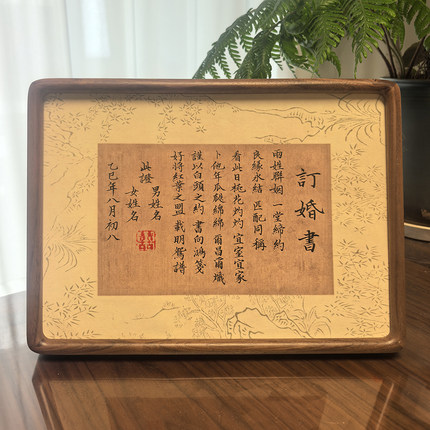 訂婚書
兩姓聯姻 一堂締約
良緣永結 匹配同稱
看此日桃花灼灼 宜室宜家
卜他年瓜瓞綿綿 爾昌爾熾
謹以白頭之約 書向鴻箋
好將紅葉之盟 載明鴛譜
此證
男姓名
女姓名
乙巳年八月初八